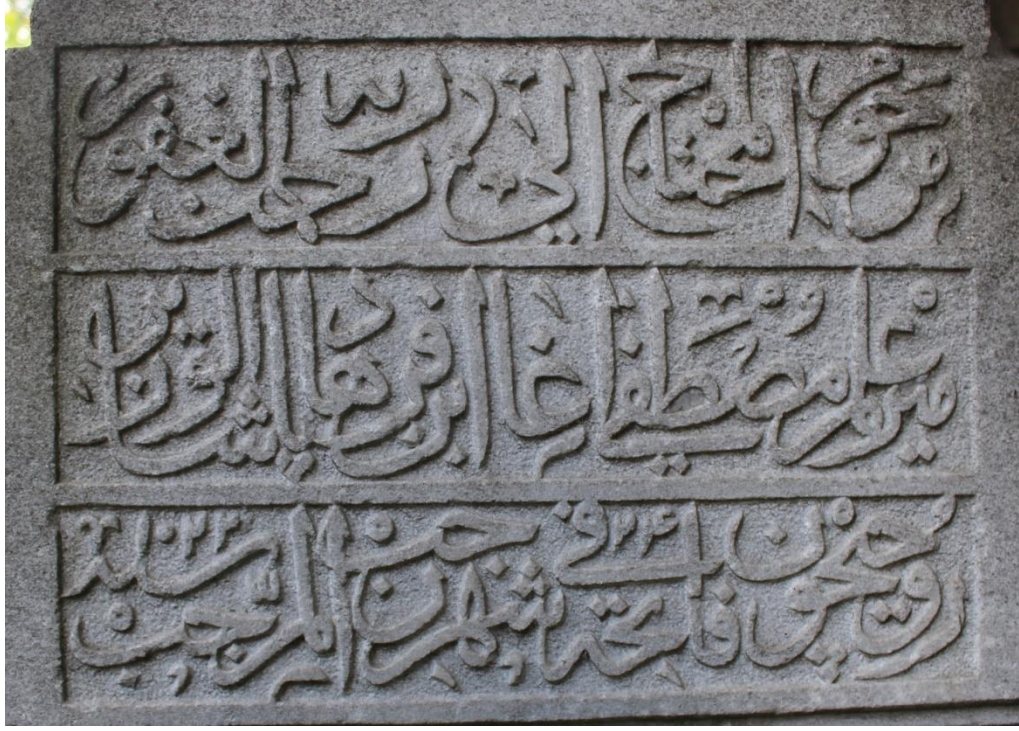 مرحوم المحتاج الى رحمت ربه الغفور
میر علم مصطفى اغا ابن فرهاد پاشا
روحیچون فاتحه فی ٢٤ شهر رجب المرجب سنه